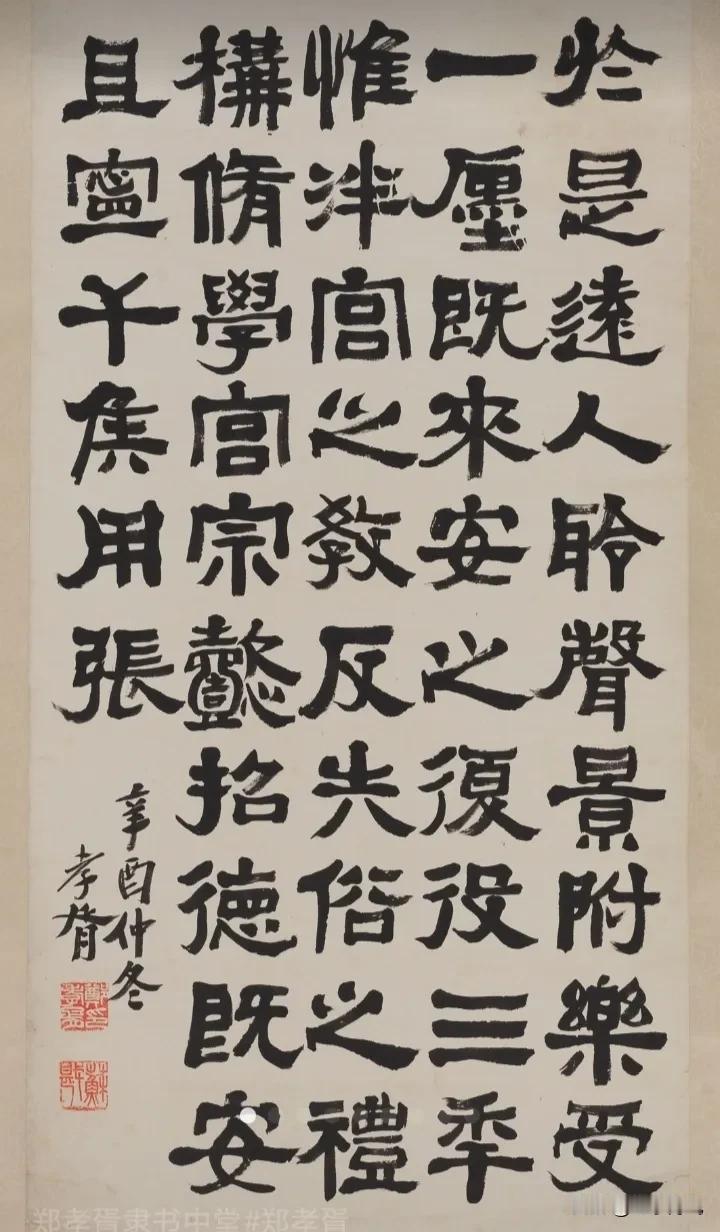 於是遠人聆聲景附樂受
一廛既來安之復役三秊
惟泮宮之教反失俗之禮
構脩學宮宗懿招德既安
且寧千侯用張
辛酉仲冬
孝胥
郑孝胥隶书中堂#郑孝胥